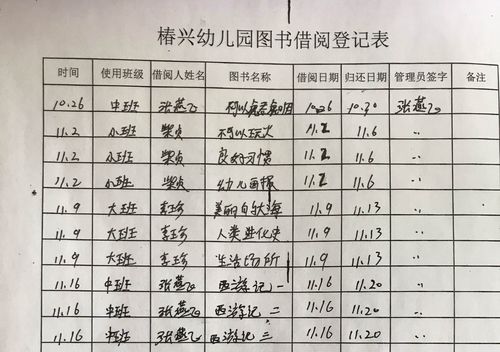 椿兴幼儿园图书借阅登记表
时间 使用班级 借阅人姓名 图书名称 借阅日期 归还日期 管理员签字 备注
10.26 中班 张燕飞 10.26 10.30 张燕飞
11.2 小班 柴贞 不可以玩火 11.2 11.6 〃
11.2 小班 柴贞 良好习惯 11.2 11.6 〃
11.2 小班 柴贞 幼儿画报 11.2 11.6 〃
11.9 大班 李玉珍 美丽的大海 11.9 11.13 〃
11.9 大班 李玉珍 人类进化史 11.9 11.13 〃
11.9 大班 李玉珍 生活场所 11.9 11.13 〃
11.16 中班 张燕飞 西游记一 11.16 11.20 〃
11.16 中班 张燕飞 西游记二 11.16 11.20 〃
11.16 中班 张燕飞 西游记三 11.16 11.20 〃